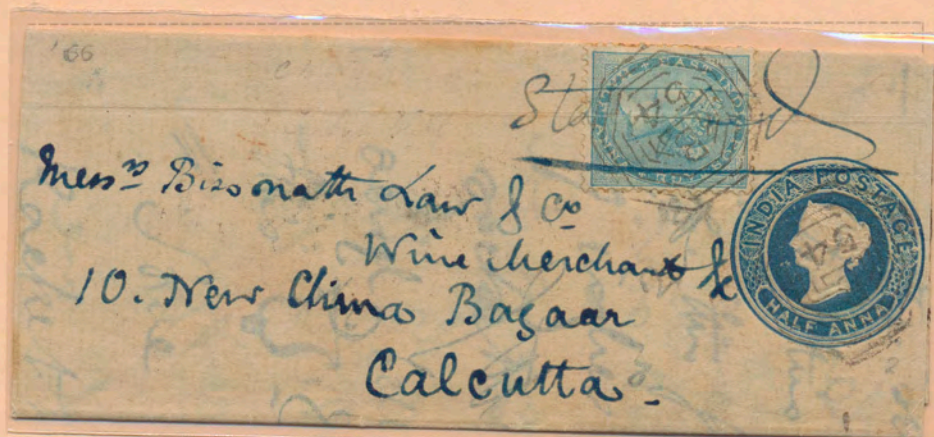 '66
Mess<sup>rs</sup> Bissonath Law & Co
Wine Merchant &c
10. New China Bazaar
Calcutta.
INDIA POSTAGE
HALF ANNA